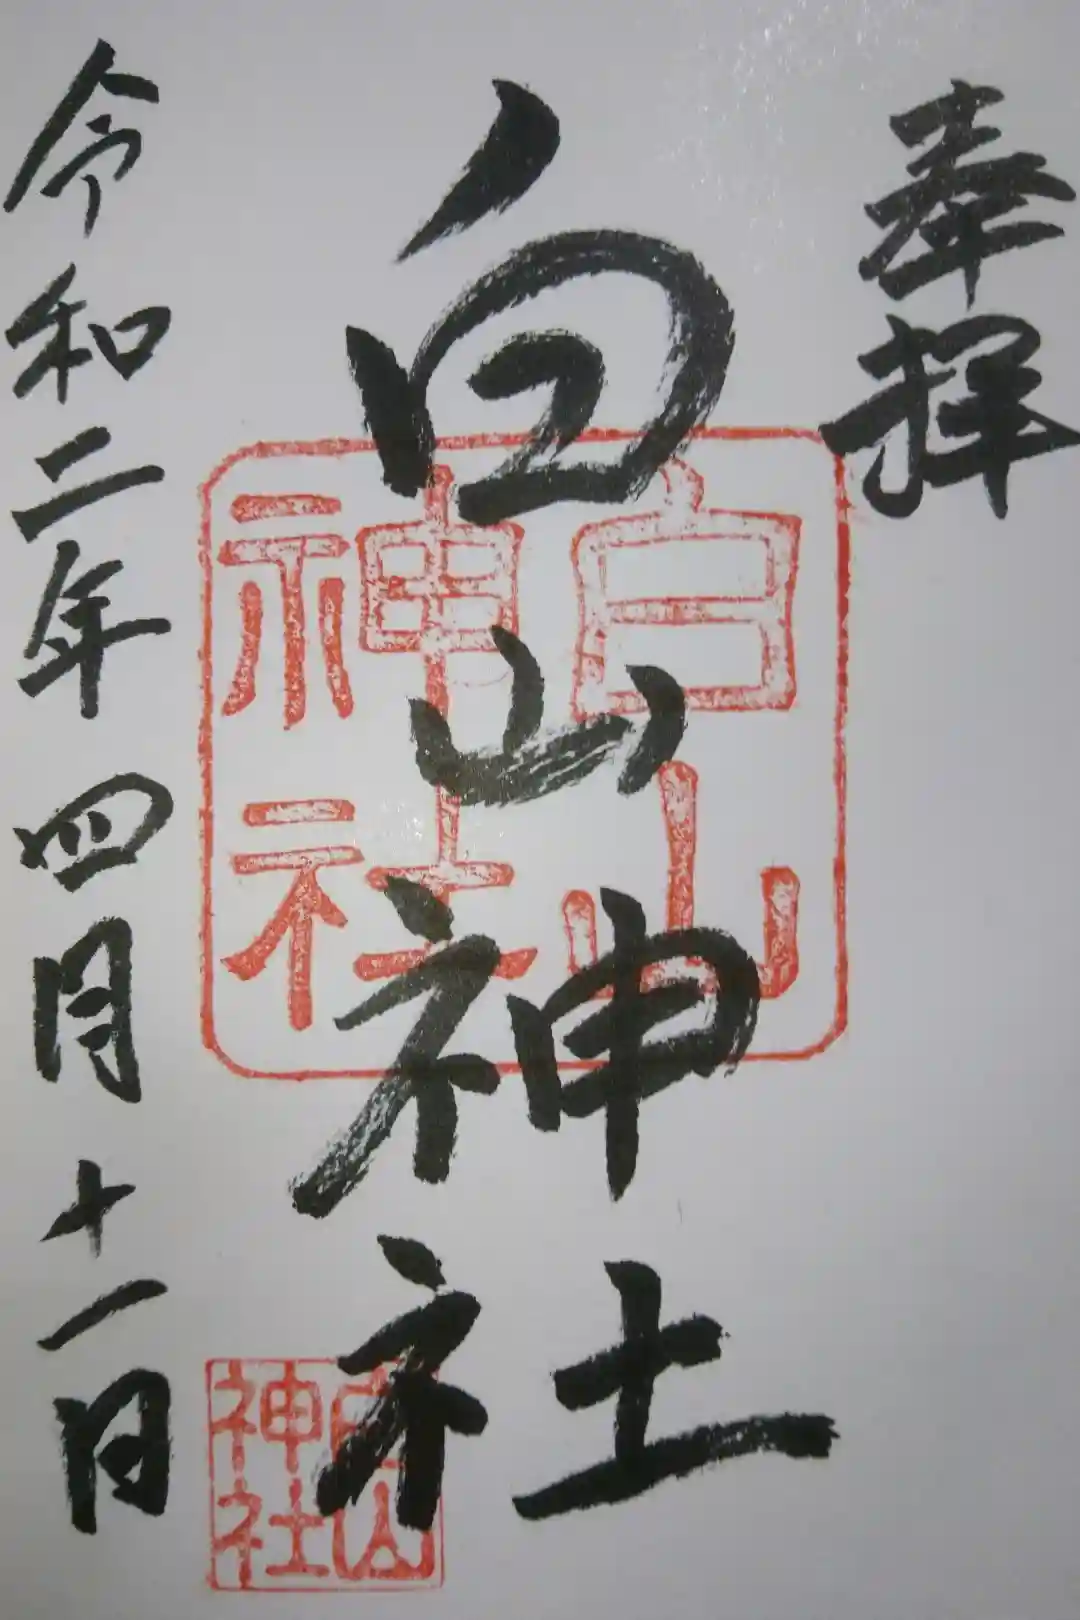 奉拝
白山神社
白山
神社
白山
神社
令和二年四月十一日